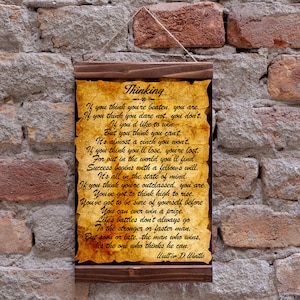 Thinking
If you think you're beaten, you are.
If you think you dare not, you don't.
If you'd like to win
But you think you can't,
It's almost a cinch you won't.
If you think you'll lose, you're lost.
For out in the world you'll find
Success begins with a fellow's will.
It's all in the state of mind.
If you think you're outclassed, you are.
You've got to think high to rise.
You've got to be sure of yourself before
You can ever win a prize.
Life's battles don't always go
To the stronger or faster man.
But soon or late, the man who wins,
Is the one who thinks he can.
Walter D Wintle